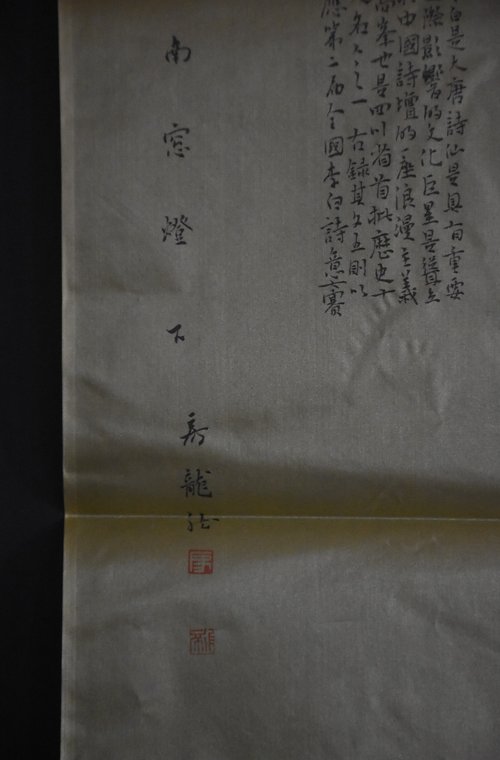 白是大唐詩仙是具有重要
際影響的文化巨星是矗立
中國詩壇的一座浪漫主義
高峯也是四川省首批歷史十
名人之一右錄其文五則以
應第二屆全國李白詩意賽
南窓燈下
龍